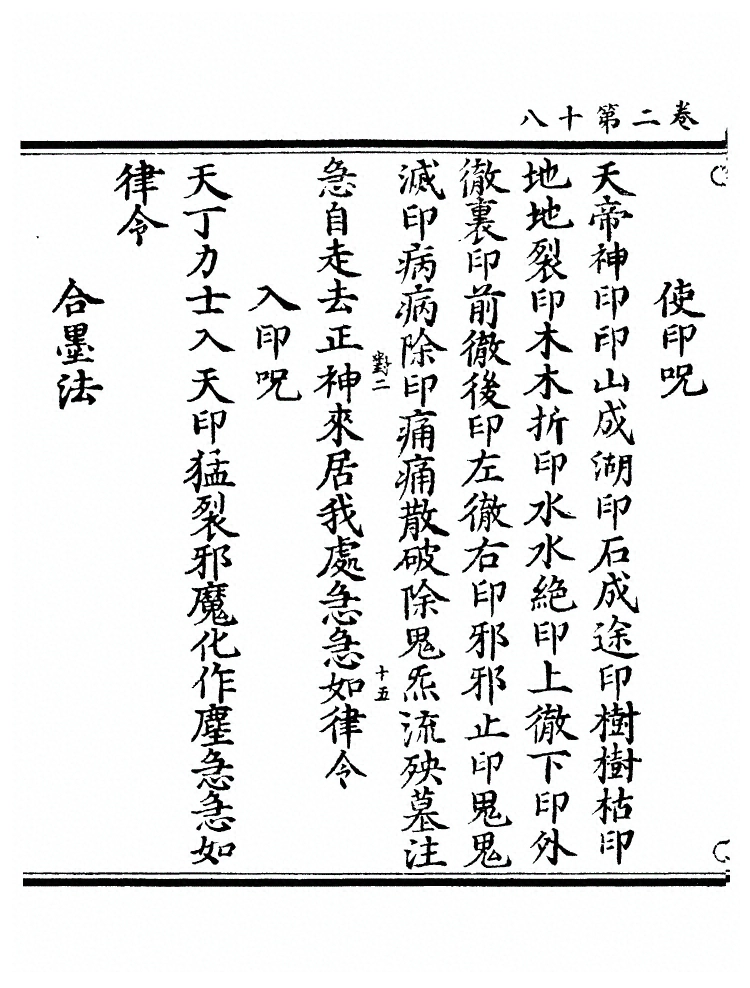 卷二第十八
使印呪
天帝神印印山成湖印石成途印樹樹枯印
地地裂印木木折印水水絶印上徹下印外
徹裏印前徹後印左徹右印邪邪止印鬼鬼
滅印病病除印痛痛散破除鬼炁流殃墓注
對二
十五
急自走去正神來居我處急急如律令
入印呪
天丁力士入天印猛裂邪魔化作塵急急如
律令
合墨法